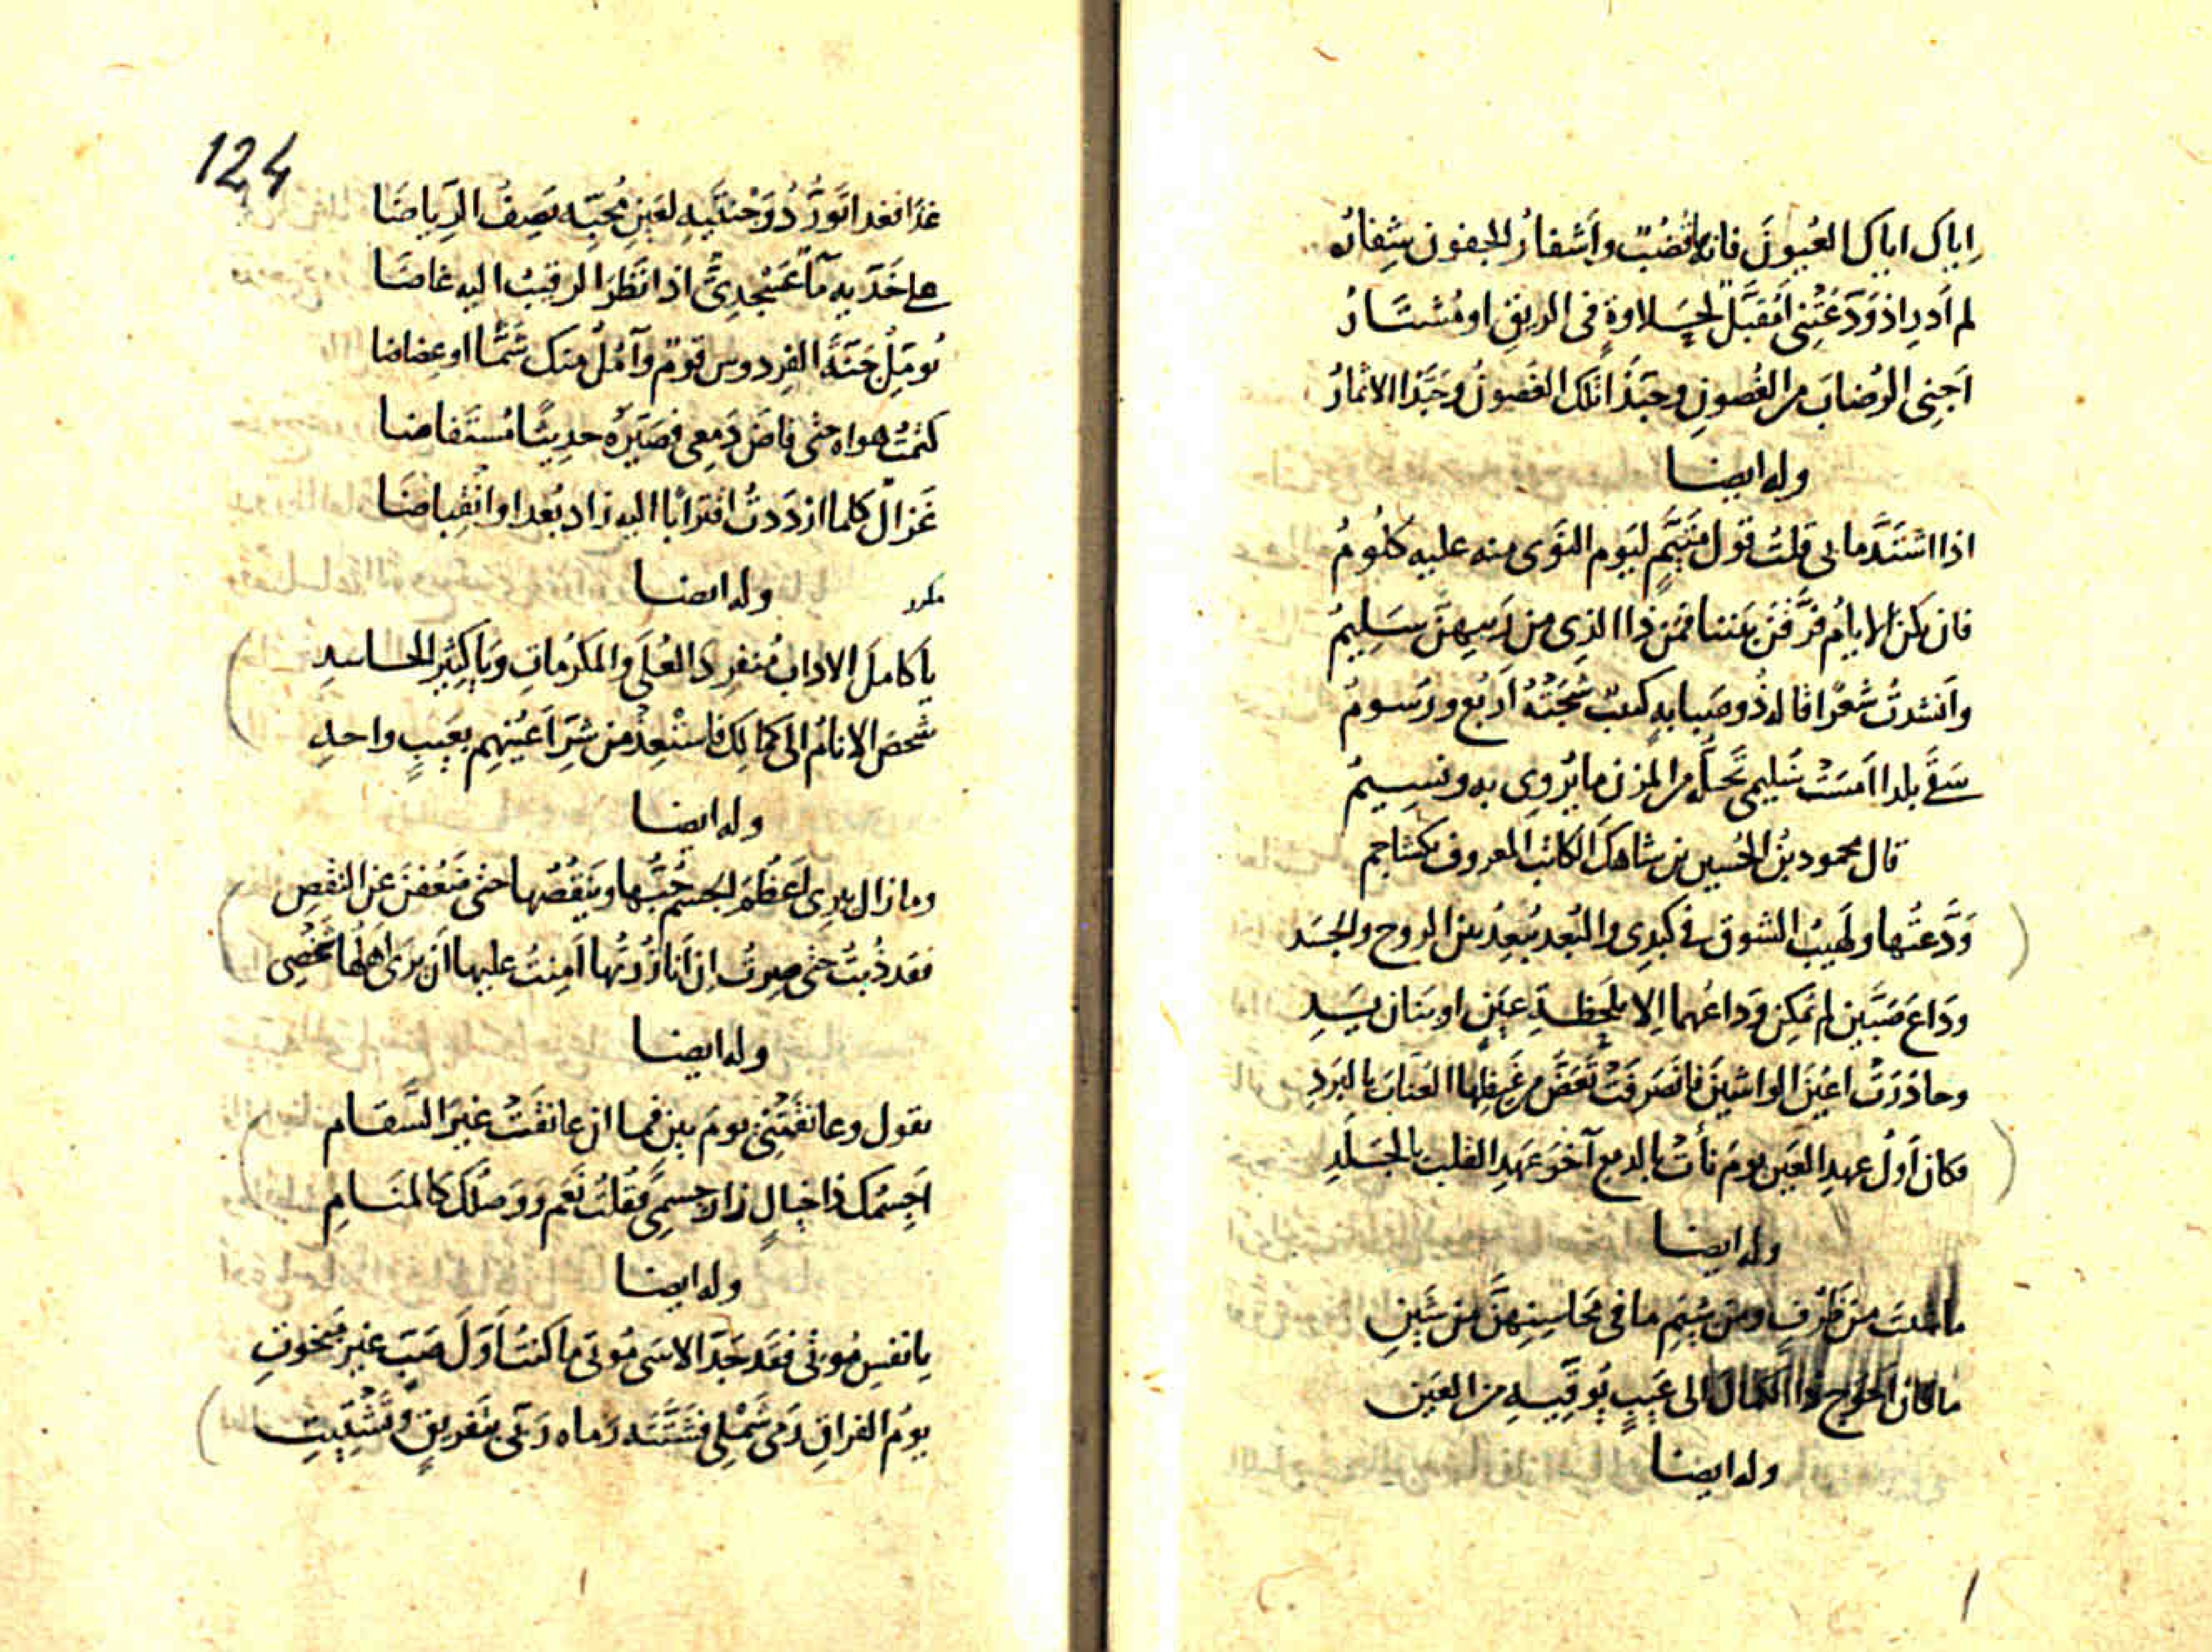 اياك اياك العُيونَ فانها قُضُبٌ واَشفارُ الجفون شِفارُ
لم اَدرِ اذ وَدَّعْتِنى اَمُقبَّلٌ لحَلاوةٍ فى الريق او مُشتَارُ
اَجِنى الرُضابَ من الغُصونِ وحبَّذا تلك الغصونُ وحَبَّذا الاثمارُ
وله ايضا
اذا اشتَدَّ ما بى قلتُ قول مُتيَّمٍ ليَوم النَّوى منه عليه كلُومُ
فان تكن الايامُ فرَّقْنَ بَيننا فمَن ذا الذِى من رَيبهنّ سَلِيمُ
وانشدتُ شعْرا قاله ذُو صَبابةٍ كئيبٌ شَجَتْهُ اَربُع ورُسومُ
سَقَى بلدا اَمسَتْ سُليمى تَحلُّه من المزن ما يَروى به ونسِيمُ
قال محمود بنُ الحُسين بن شاهك الكاتب المعروف بكشاجم
وَدَّعتُها ولَهيبُ الشوق فى كَبِدِى والبُعد يُبعِدُ بين الروح والجَسَد
وِدَاعَ صَبَّينِ لم يمكن وَداعُهما اِلا بلَحظةِ عَينٍ او بنَان يَدِ
وحاذَرَتْ اعيُنَ الواشينَ فانصَرفَتْ تَعَضُّ من غيظها العنّابَ بالبَردِ
فكان اَولُ عهدِ العَين يومَ نأتْ بالدمع آخرَ عَهدِ القلب بالجَلَدِ
وله ايضا
ما شئت من ظَرْفٍ ومن شيَمٍ ما فى مَحاسِنِهنَّ من شَينِ
ما كان اَحْوَج ذا الكمال الى عَيبٍ يُوَقِّيهِ من العَين
وله ايضا
124
غذا فغدا تَورُّدُ وَجْنتَيهِ لعَينِ مُحِبّه يَصِفُ الرِياضَا
على خَدَّيه مآ عَسْجدِىٌّ اذا نَظَرَ الرقيبُ اليه غاضَا
يُومِّلُ جَنّةَ الفِردوس قومٌ وآمُلُ منك شَمًّا او عِضاضا
كتمتُ هواه حتى فاضَ دَمعِى فصَيّرَهُ حديثًا مُستَفاضا
غَزالٌ كلما ازدَدتُ اقترَابا اليه زاد بُعدا وانْقِباضَا
مكرر
وله ايضا
يا كاملَ الاداب مُنفرِدَ العُلَى والمكرُماتِ وَيَا كثيرَ الحاسدِ
شَخصَ الانامُ الى كمَالِكَ فاستْعِذْ من شَرِّ اَعيُنهِم بعَيبٍ واحدِ
وله ايضا
وما زال يبرِى اَعظُمَ الجسم حُبُّها ويَنقُصُها حتى ضَعُفنَ عن النقصِ
فقد ذُبتُ حتى صِرتُ اِن اَنا زُرتُها اَمِنتُ عليها اَن يَرَى اَهلُها شَخْصِى
وله ايضا
تقول وعانقَتْنى يومَ بين فما ان عانقَتْ غيرَ السَّقام
اَجِسْمُك ذا خيالٍ زار جسمِى فقُلتُ نَعَم ووَصلُكِ كالمنَامِ
وله ايضا
يا نفسِ مُوتى فقد جَدَّ الاسَى مُوتى ما كنتُ اَوّلَ صَبٍّ غير مَبخُوتِ
يومُ الفراقِ رَمَى شَمْلى فشَتَّتَه رَماه رَبّى بتَفريقٍ وتَشْتِيتِ